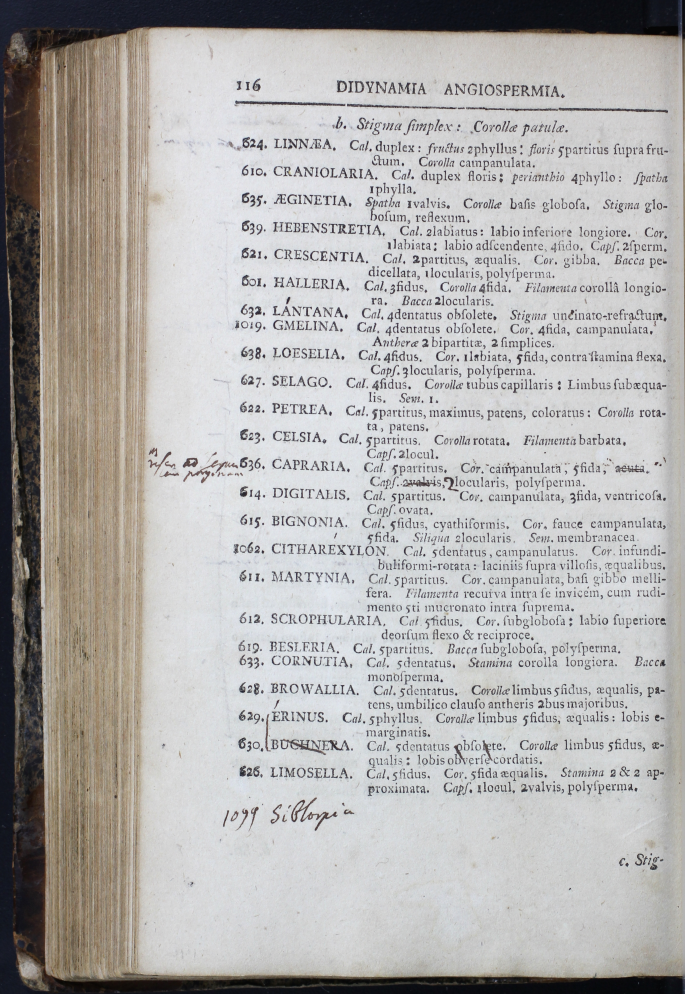 116 DIDYNAMIA ANGIOSPERMIA.
b. Stigma ſimplex: Corollæ patulæ.
624. LINNÆA. Cal. duplex: fructus 2phyllus: floris 5partitus ſupra fru-
ctum. Corolla campanulata.
610. CRANIOLARIA. Cal. duplex floris: perianthio 4phyllo: ſpatha
1phylla.
635. ÆGINETIA. Spatha 1valvis. Corollæ baſis globoſa. Stigma glo-
boſum, reflexum.
639. HEBENSTRETIA. Cal. 2labiatus: labio inferiore longiore. Cor.
1labiata: labio adſcendente, 4fido. Capſ. 2ſperm.
621. CRESCENTIA. Cal. 2partitus, æqualis. Cor. gibba. Bacca pe-
dicellata, 1locularis, polyſperma.
601. HALLERIA. Cal. 3fidus. Corolla 4fida. Filamenta corollâ longio-
ra. Bacca 2locularis.
632. LANTANA. Cal. 4dentatus obſolete. Stigma uncinato-refractum.
1019. GMELINA. Cal. 4dentatus obſolete. Cor. 4fida, campanulata.
Antheræ 2 bipartitæ, 2 ſimplices.
638. LOESELIA. Cal. 4fidus. Cor. 1labiata, 5fida, contra ſtamina flexa.
Capſ. 3locularis, polyſperma.
627. SELAGO. Cal. 4fidus. Corollæ tubus capillaris: Limbus ſubæqua-
lis. Sem. 1.
622. PETREA. Cal. 5partitus, maximus, patens, coloratus: Corolla rota-
ta, patens.
623. CELSIA. Cal. 5partitus. Corolla rotata. Filamenta barbata.
Capſ. 2locul.
636. CAPRARIA. Cal. 5partitus. Cor. campanulata, 5fida, acuta.
Capſ. 2valvis, 2locularis, polyſperma.
614. DIGITALIS. Cal. 5partitus. Cor. campanulata, 3fida, ventricoſa.
Capſ. ovata.
615. BIGNONIA. Cal. 5fidus, cyathiformis. Cor. fauce campanulata,
5fida. Siliqua 2locularis. Sem. membranacea
1062. CITHAREXYLON. Cal. 5dentatus, campanulatus. Cor. infundi-
buliformi-rotata: laciniis ſupra villoſis, æqualibus.
611. MARTYNIA. Cal. 5partitus. Cor. campanulata, baſi gibbo melli-
fera. Filamenta recurva intra ſe invicem, cum rudi-
mento 5ti mucronato intra ſuprema.
612. SCROPHULARIA. Cal. 5fidus. Cor. ſubgloboſa: labio ſuperiore
deorſum flexo & reciproce.
619. BESLERIA. Cal. 5partitus. Bacca ſubgloboſa, polyſperma.
633. CORNUTIA. Cal. 5dentatus. Stamina corolla longiora. Bacca
monoſperma.
628. BROWALLIA. Cal. 5dentatus. Corollæ limbus 5fidus, æqualis, pa-
tens, umbilico clauſo antheris 2bus majoribus.
629. ERINUS. Cal. 5phyllus. Corollæ limbus 5fidus, æqualis: lobis e-
marginatis.
630. BUCHNERA. Cal. 5dentatus obſolete. Corollæ limbus 5fidus, æ-
qualis: lobis obverſe cordatis.
626. LIMOSELLA. Cal. 5fidus. Cor. 5fida æqualis. Stamina 2 & 2 ap-
proximata. Capſ. 1locul. 2valvis, polyſperma.
1099 Sibtorpia
c. Stig-